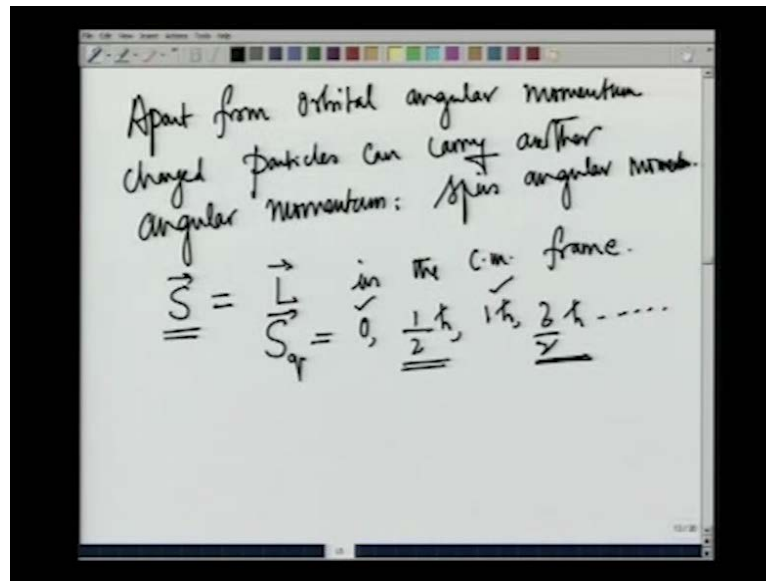 Apart from orbital angular momentum
charged particles can carry another
angular momentum: spin angular momentum.
S⃗ = L⃗ in the c.m. frame.
S⃗q = 0, 1/2 ħ, 1ħ, 3/2 ħ .....